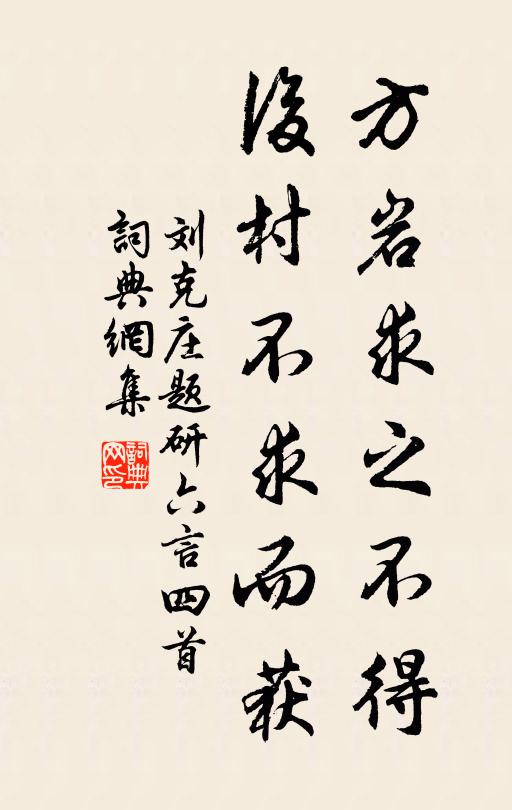 方岩求之不得
後村不求而获
刘克庄题研六言四首
詞典網集
詞典
网印